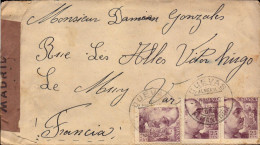 Monsieur Damian Gonzales
Rue Les Halles Victor Hugo
Le Muy Var
(Francia)
MADRID
CUEVAS